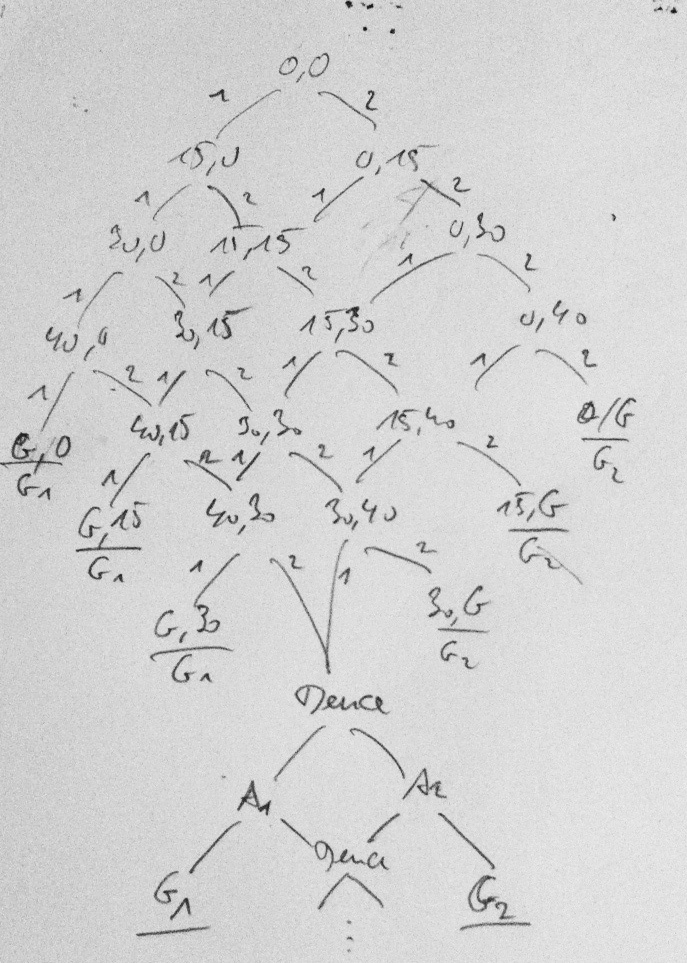 0,0
1 2
15,0 0,15
1 2 1 2
30,0 15,15 0,30
1 2 1 2 1 2
40,0 30,15 15,30 0,40
1 2 1 2 1 2 1 2
G,0 40,15 30,30 15,40 0/G
G1 1 2 1 2 1 2 G2
G,15 40,30 30,40 15,G
G1 1 2 1 2 G2
G,30 30,G
G1 G2
Deuce
A1 A2
Deuce
G1 G2